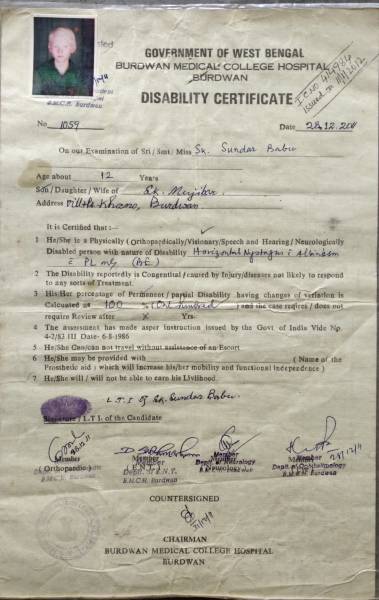 GOVERNMENT OF WEST BENGAL
BURDWAN MEDICAL COLLEGE HOSPITAL
BURDWAN
DISABILITY CERTIFICATE
B.M.C.H. Burdwan
No 1059 Date 28.12.2011
On our Examination of Sri / Smt / Miss Sk. Sundar Babu
Age about 12 Years
Son / Daughter / Wife of Sk. Mujibar
Address Burdwan
It is Certified that :-
1 He/She is a Physically ( Orthopardically/Visionary/Speech and Hearing / Neurologically
Disabled person with nature of Disability Horizontal Nystagmus Albinism
PL (BE)
2 The Disability reportedly is Congential / caused by Injury/diseases not likely to respond
to any sorts of Treatment.
3 His/Her percentage of Permenent / partial Disability having changes of variation is
Calculated at 100 (One hundred) and the case requires / does not
require Review after × Yrs.
4 The assessment has made asper instruction issued by the Govt of India Vide Np.
4-2/83 III Date- 6-8-1986
5 He/She Can/can not travel without assistance of an Escort
6 He/She may be provided with ( Name of the
Prosthetic aid ; which will increase his/her mobility and functional independence )
7 He/She will / will not be able to earn his Livlihood.
L.T.I of Sk. Sundar Babu.
Signature / L.T.I. of the Candidate
Member Member Member Member
(Orthopaedic) Deptt. of E.N.T. Deptt. of Ophthalmology
B.M.C.H. Burdwan B.M.C.H. Burdwan B.M.C.H. Burdwan
COUNTERSIGNED
CHAIRMAN
BURDWAN MEDICAL COLLEGE HOSPITAL
BURDWAN